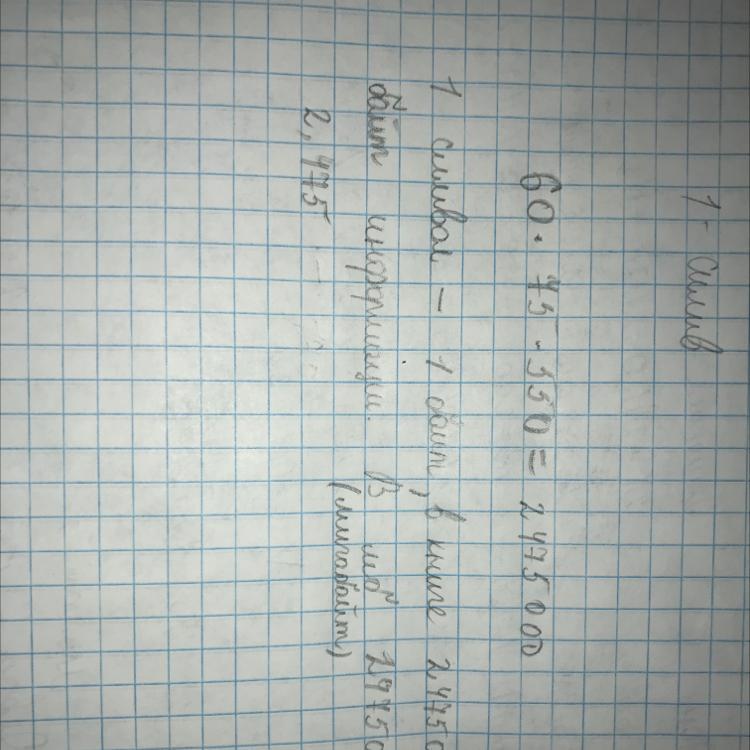 1 - симив
60 · 75 · 550 = 2475000
1 символ — 1 байт, в книге 24750
байт информации. В мб 24750
2,475 (мигабайт)